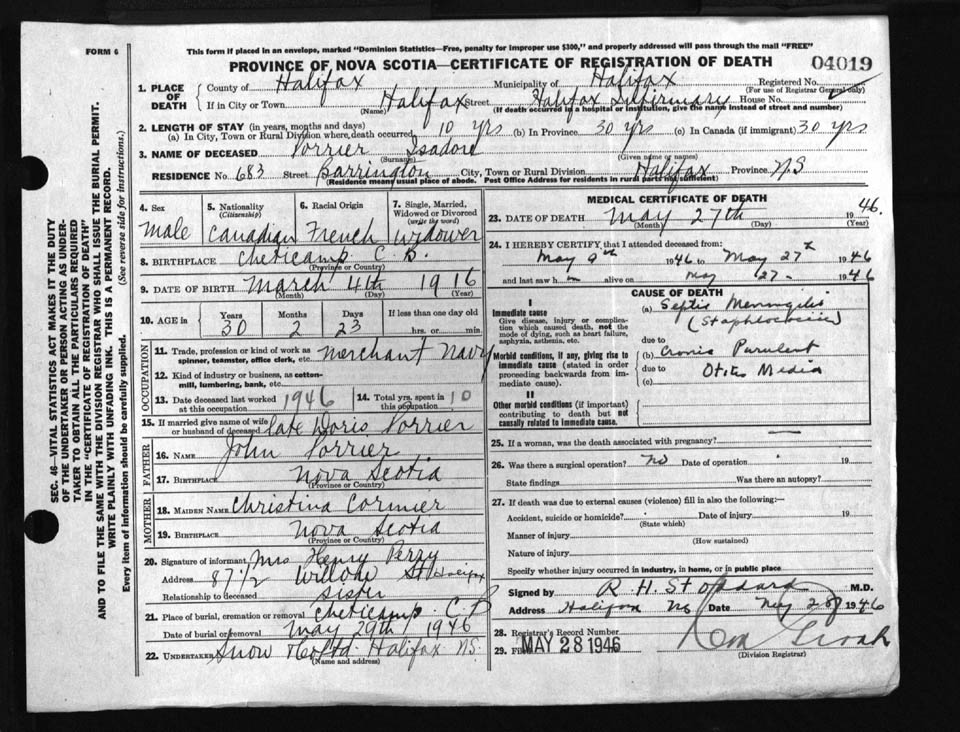 FORM 6
This form if placed in an envelope, marked "Dominion Statistics—Free, penalty for improper use $300," and properly addressed will pass through the mail "FREE"
PROVINCE OF NOVA SCOTIA—CERTIFICATE OF REGISTRATION OF DEATH
04019
1. PLACE OF DEATH
County of Halifax Municipality of Halifax Registered No.
(For use of Registrar General only)
If in City or Town Halifax Street Halifax Infirmary House No.
(Name) (If death occurred in a hospital or institution, give the name instead of street and number)
2. LENGTH OF STAY (in years, months and days)
(a) In City, Town or Rural Division where death occurred 10 yrs (b) In Province 30 yrs (c) In Canada (if immigrant) 30 yrs
3. NAME OF DECEASED Porrier Isadore
(Surname) (Given name or names)
RESIDENCE No. 683 Street Barrington City, Town or Rural Division Halifax Province N.S
(Residence means usual place of abode. Post Office Address for residents in rural parts not sufficient)
4. Sex
Male
5. Nationality
(Citizenship)
Canadian
6. Racial Origin
French
7. Single, Married, Widowed or Divorced
(write the word)
Widower
8. BIRTHPLACE Cheticamp C.B.
(Province or Country)
9. DATE OF BIRTH March 4th 1916
(Month) (Day) (Year)
10. AGE in
Years Months Days If less than one day old
30 2 23 hrs. or min.
OCCUPATION
11. Trade, profession or kind of work as spinner, teamster, office clerk, etc. Merchant Navy
12. Kind of industry or business, as cotton-mill, lumbering, bank, etc.
13. Date deceased last worked at this occupation 1946
14. Total yrs. spent in this occupation 10
15. If married give name of wife or husband of deceased late Doris Porrier
FATHER
16. Name John Porrier
17. Birthplace Nova Scotia
(Province or Country)
MOTHER
18. Maiden Name Christina Cormier
19. Birthplace Nova Scotia
(Province or Country)
20. Signature of informant Mrs Henry Perry
Address 87 1/2 Willow St Halifax
Relationship to deceased Sister
21. Place of burial, cremation or removal Cheticamp C.B
Date of burial or removal May 29th 1946
22. Undertaker Snow & Co Ltd. Halifax N.S.
(Name and address)
MEDICAL CERTIFICATE OF DEATH
23. DATE OF DEATH May 27th 1946.
(Month) (Day) (Year)
24. I HEREBY CERTIFY, that I attended deceased from:
May 9th 1946 to May 27th 1946
and last saw h im alive on May 27 1946
CAUSE OF DEATH
I
Immediate cause
Give disease, injury or complication which caused death, not the mode of dying, such as heart failure, asphyxia, asthenia, etc.
(a) Septic Meningitis
due to
Morbid conditions, if any, giving rise to immediate cause (stated in order proceeding backwards from immediate cause).
(b) Cronic Purulent
due to Otitis Media
(c)
II
Other morbid conditions (if important) contributing to death but not causally related to immediate cause.
25. If a woman, was the death associated with pregnancy?
26. Was there a surgical operation? No Date of operation 19
State findings Was there an autopsy?
27. If death was due to external causes (violence) fill in also the following:—
Accident, suicide or homicide? Date of injury 19
(State which)
Manner of injury
(How sustained)
Nature of injury
Specify whether injury occurred in industry, in home, or in public place
Signed by R. H. Stoddard M.D.
Address Halifax NS Date May 28 1946
28. Registrar's Record Number
29. Filed MAY 28 1946
(Division Registrar)
SEC. 46—VITAL STATISTICS ACT MAKES IT THE DUTY
OF THE UNDERTAKER OR PERSON ACTING AS UNDER-
TAKER TO OBTAIN ALL THE PARTICULARS REQUIRED
IN THE "CERTIFICATE OF REGISTRATION OF DEATH"
AND TO FILE THE SAME WITH THE DIVISION REGISTRAR WHO SHALL ISSUE THE BURIAL PERMIT.
WRITE PLAINLY WITH UNFADING INK. THIS IS A PERMANENT RECORD.
Every item of information should be carefully supplied. (See reverse side for instructions.)